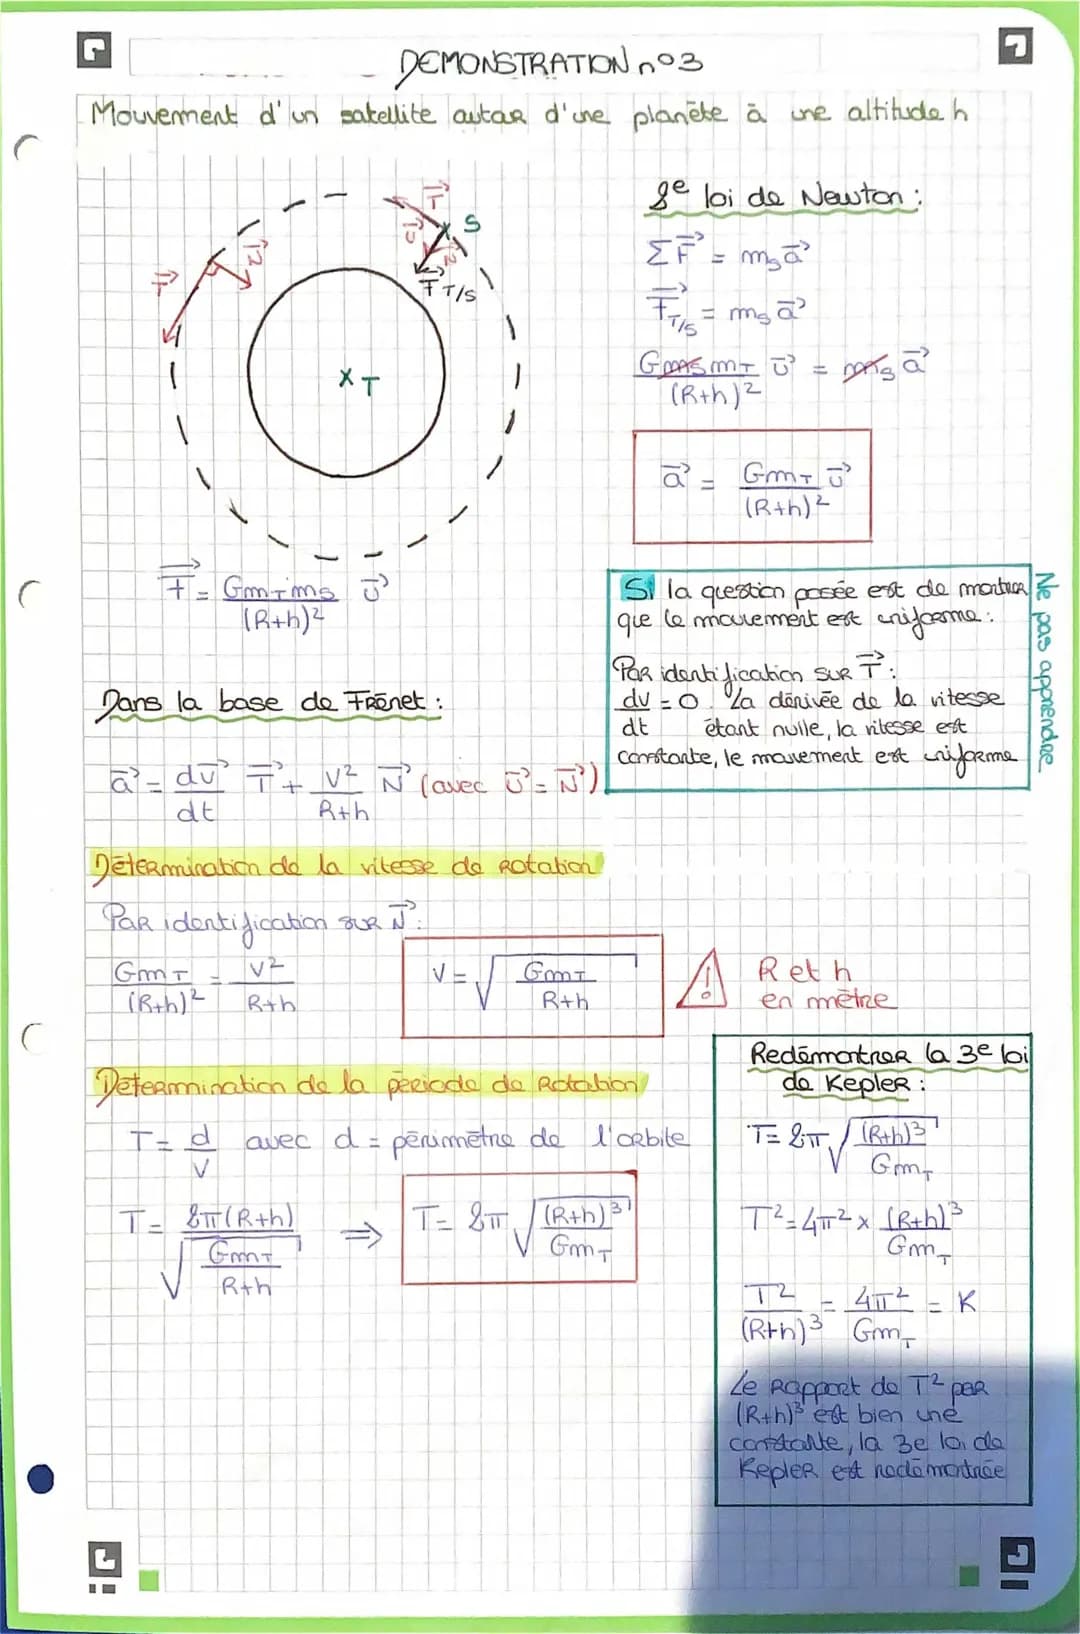 DEMONSTRATION n°3
Mouvement d'un satellite autour d'une planète à une altitude h
T
N
T
U
N
S
F T/S
x T
F = GmTmS/(R+h)² u
2e loi de Newton :
ΣF = mS a
F T/S = mS a
GmSmT/(R+h)² u = mS a
a = GmT/(R+h)² u
Si la question posée est de montrer
que le mouvement est uniforme :
Par identification sur T :
dv/dt = 0. La dérivée de la vitesse
étant nulle, la vitesse est
constante, le mouvement est uniforme
Ne pas apprendre
Dans la base de Frenet :
a = dv/dt T + v²/R+h N (avec u = N)
Détermination de la vitesse de rotation
Par identification sur N :
GmT/(R+h)² = v²/R+h
v = √GmT/R+h
! R et h
en mètre
Détermination de la période de rotation
T = d/v avec d = périmètre de l'orbite
T = 2π(R+h)/√GmT/R+h ⇒ T = 2π √(R+h)³/GmT
Redémontrer la 3e loi
de Kepler :
T = 2π √(R+h)³/GmT
T² = 4π² x (R+h)³/GmT
T²/(R+h)³ = 4π²/GmT = K
Le rapport de T² par
(R+h)³ est bien une
constante, la 3e loi de
Kepler est redémontrée